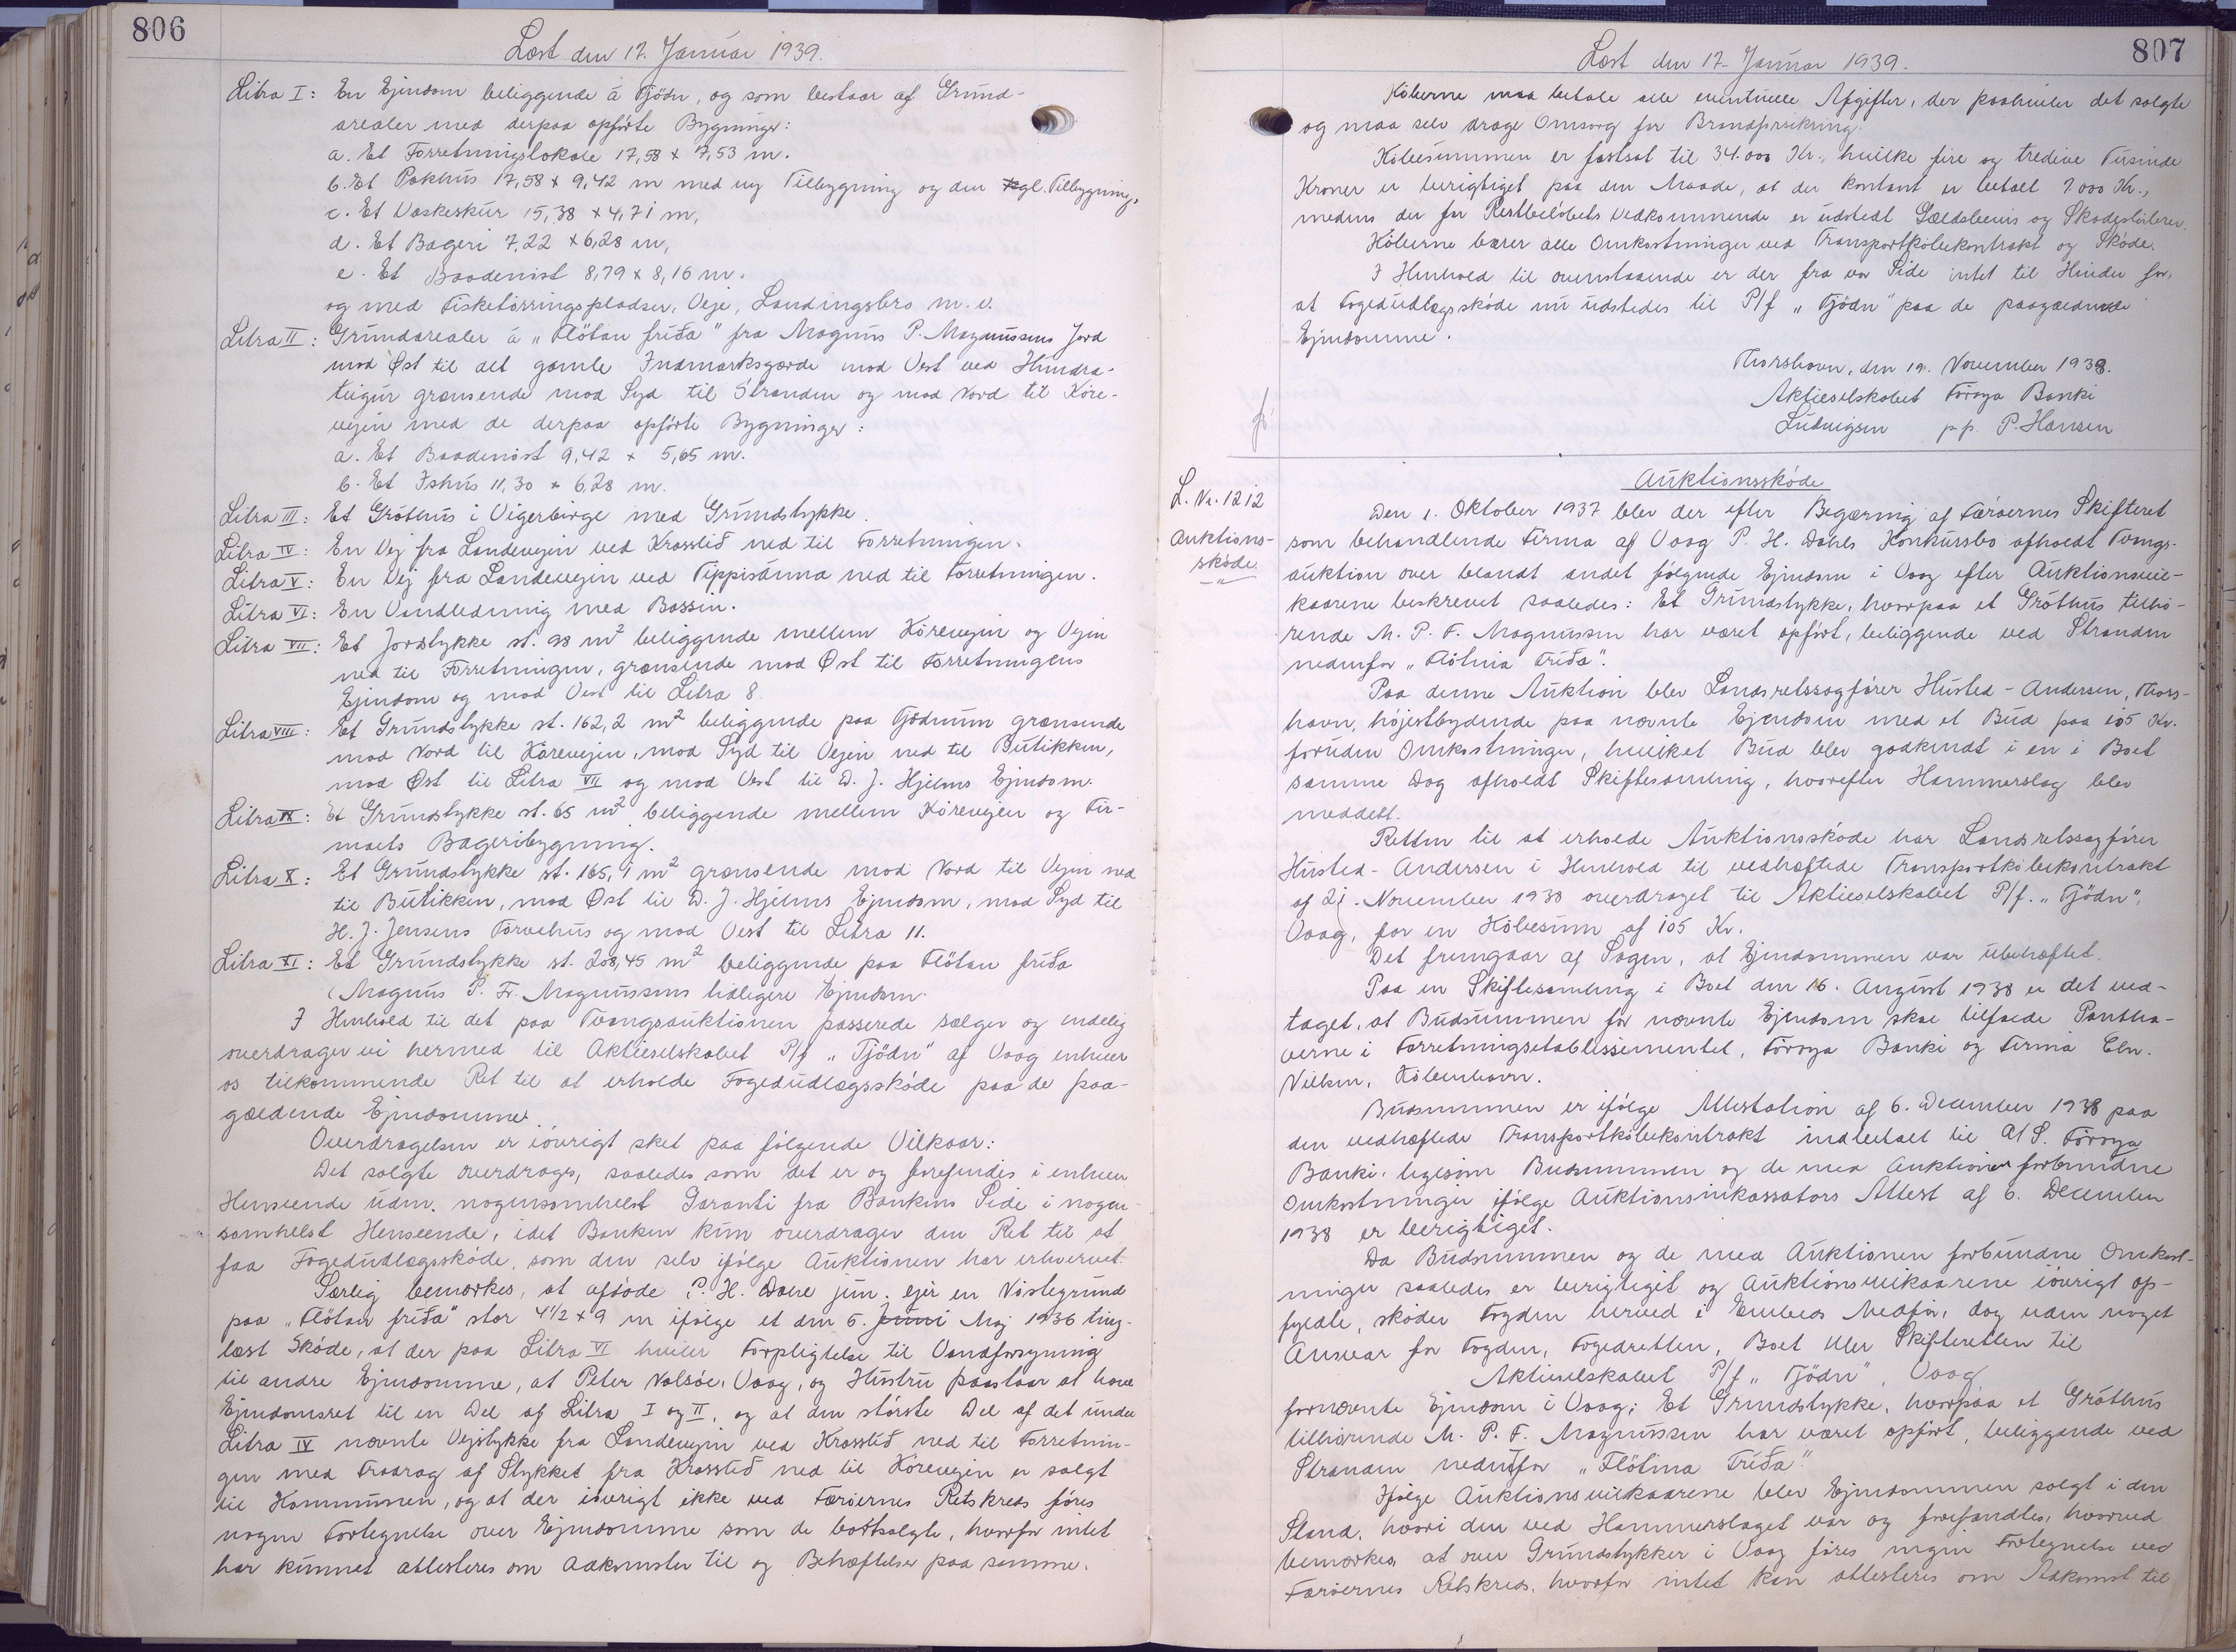 806
Læst den 17. Januar 1939.
Litra I: En Ejendom beliggende á Tjödn, og som bestaar af Grund-
arealer med derpaa opførte Bygninger:
a. Et Forretningslokale 17,58 x 7,53 m.
b. Et Pakhus 17,58 x 9,42 m med ny Tilbygning og den gl. Tilbygning,
c. Et Vaskeskur 15,38 x 4,71 m,
d. Et Bageri 7,22 x 6,28 m,
e. Et Baadenöst 8,79 x 8,16 m.
og med Fisketørringspladser, Veje, Landingsbro m.v.
Litra II: Grundarealer á "Flötan fríða" fra Magnus P. Magnussens Jord
mod Øst til det gamle Indmarksgærde mod Vest ved Hundra-
teigur grænsende mod Syd til Stranden og mod Nord til Köre-
vejen med de derpaa opførte Bygninger:
a. Et Baadenöst 9,42 x 5,65 m.
b. Et Ishus 11,30 x 6,28 m.
Litra III: Et Gróthus i Vigerbirge med Grundstykke.
Litra IV: En Vej fra Landevejen ved Krosslið ned til Forretningen.
Litra V: En Vej fra Landevejen ved Tippisánna ned til Forretningen.
Litra VI: En Vandledning med Bassin.
Litra VII: Et Jordstykke st. 98 m² beliggende mellem Körevejen og Vejen
ned til Forretningen, grænsende mod Øst til Forretningens
Ejendom og mod Vest til Litra 8.
Litra VIII: Et Grundstykke st. 162,2 m² beliggende paa Tjødnum grænsende
mod Nord til Körevejen, mod Syd til Vejen ned til Butikken,
mod Øst til Litra VII og mod Vest til D. J. Hjelms Ejendom.
Litra IX: Et Grundstykke st. 65 m² beliggende mellem Körevejen og Fir-
maets Bageribygning.
Litra X: Et Grundstykke st. 165,1 m² grænsende mod Nord til Vejen ned
til Butikken, mod Øst til D. J. Hjelms Ejendom, mod Syd til
H. J. Jensens Törvehus og mod Vest til Litra 11.
Litra XI: Et Grundstykke st. 208,45 m² beliggende paa Flötan fríða
(Magnus P. Fr. Magnussens tidligere Ejendom.
I Henhold til det paa Tvangsauktionen passerede sælger og endelig
overdrager vi hermed til Aktieselskabet P/f "Tjödn" af Vaag enhver
os tilkommende Ret til at erholde Fogedudlægsskóde paa de paa-
gældende Ejendomme.
Overdragelsen er iövrigt sket paa følgende Vilkaar:
Det solgte overdrages, saaledes som det er og forefindes i enhver
Henseende uden nogensomhelst Garanti fra Bankens Side i nogen-
somhelst Henseende, idet Banken kun overdrager den Ret til at
faa Fogedudlægsskóde, som den selv ifølge Auktionen har erhvervet.
Særlig bemærkes, at afdøde P. H. Dahl jun. ejer en Nöstegrund
paa "Flötan fríða" stor 4½ x 9 m ifølge et den 6. Juni Maj 1936 ting-
læst Skóde, at der paa Litra VI hviler Forpligtelse til Vandforsyning
til andre Ejendomme, at Peter Nolsöe, Vaag, og Hustru paastaar at have
Ejendomsret til en Del af Litra I og II, og at den störste Del af det under
Litra IV nævnte Vejstykke fra Landevejen ved Krosslið ned til Forretnin-
gen med Fradrag af Stykket fra Krosslið ned til Körevejen er solgt
til Kommunen, og at der iövrigt ikke ved Færöernes Retskreds føres
nogen Fortegnelse over Ejendomme som de bortsolgte, hvorfor intet
har kunnet attesteres om Adkomster til og Behæftelser paa samme.
807
Læst den 17. Januar 1939.
Köberne maa betale alle eventuelle Afgifter, der paahviler det solgte
og maa selv drage Omsorg for Brandforsikring.
Köbesummen er fastsat til 34.000 Kr., hvilke fire og tredive Tusinde
Kroner er berigtiget paa den Maade, at der kontant er betalt 7.000 Kr.,
medens der for Restbelöbets Vedkommende er udstedt Gældsbevis og Skadeslösbrev.
Köberne bærer alle Omkostninger ved Transportköbekontrakt og Skóde.
I Henhold til ovenstaaende er der fra vor Side intet til Hinder for,
at Fogedudlægsskóde nu udstedes til P/f "Tjödn" paa de paagældende
Ejendomme.
Thorshavn, den 19. November 1938.
Aktieselskabet Föroya Banki
Ludvigsen p.p. P. Hansen
L. Nr. 1212
Auktions-
skóde.
Auktionsskóde
Den 1. Oktober 1937 blev der efter Begæring af Færöernes Skifteret
som behandlende Firma af Vaag P. H. Dahls Konkursbo afholdt Tvangs-
auktion over blandt andet følgende Ejendom i Vaag efter Auktionsvil-
kaarene beskrevet saaledes: Et Grundstykke, hvorpaa et Gróthus tilhö-
rende M. P. F. Magnussen har været opført, beliggende ved Stranden
nedenfor "Flötina Fríða".
Paa denne Auktion blev Landsretssagfører Husted-Andersen, Thors-
havn, højestbydende paa nævnte Ejendom med et Bud paa 105 Kr.
foruden Omkostninger, hvilket Bud blev godkendt i en i Boet
samme Dag afholdt Skiftesamling, hvorefter Hammerslag blev
meddelt.
Retten til at erholde Auktionsskóde har Landsretssagfører
Husted-Andersen i Henhold til vedhæftede Transportköbekontrakt
af 21. November 1938 overdraget til Aktieselskabet P/f. "Tjödn",
Vaag, for en Köbesum af 105 Kr.
Det fremgaar af Sagen, at Ejendommen var ubehæftet.
Paa en Skiftesamling i Boet den 16. August 1938 er det ved-
taget, at Budsummen for nævnte Ejendom skal tilfalde Pantha-
verne i Forretningsetablissementet, Föroya Banki og Firma Chr.
Nielsen, Köbenhavn.
Budsummen er ifølge Attestation af 6. December 1938 paa
den vedhæftede Transportköbekontrakt indbetalt til A/S. Föroya
Banki, ligesom Budsummen og de med Auktionen forbundne
Omkostninger ifølge Auktionsinkassators Attest af 6. December
1938 er berigtiget.
Da Budsummen og de med Auktionen forbundne Omkost-
ninger saaledes er berigtiget og Auktionsvilkaarene iövrigt op-
fyldte, skóder Fogden herved i Embeds Medför, dog uden noget
Ansvar for Fogden, Fogedretten, Boet eller Skifteretten til
Aktieselskabet P/f "Tjödn", Vaag
fornævnte Ejendom i Vaag: Et Grundstykke, hvorpaa et Gróthus
tilhörende M. P. F. Magnussen har været opført, beliggende ved
Stranden nedenfor "Flötina Fríða".
Ifølge Auktionsvilkaarene blev Ejendommen solgt i den
Stand, hvori den ved Hammerslaget var og forefandtes, hvorved
bemærkes, at over Grundstykker i Vaag føres ingen Fortegnelse ved
Færöernes Retskreds, hvorfor intet kan attesteres om Adkomst til